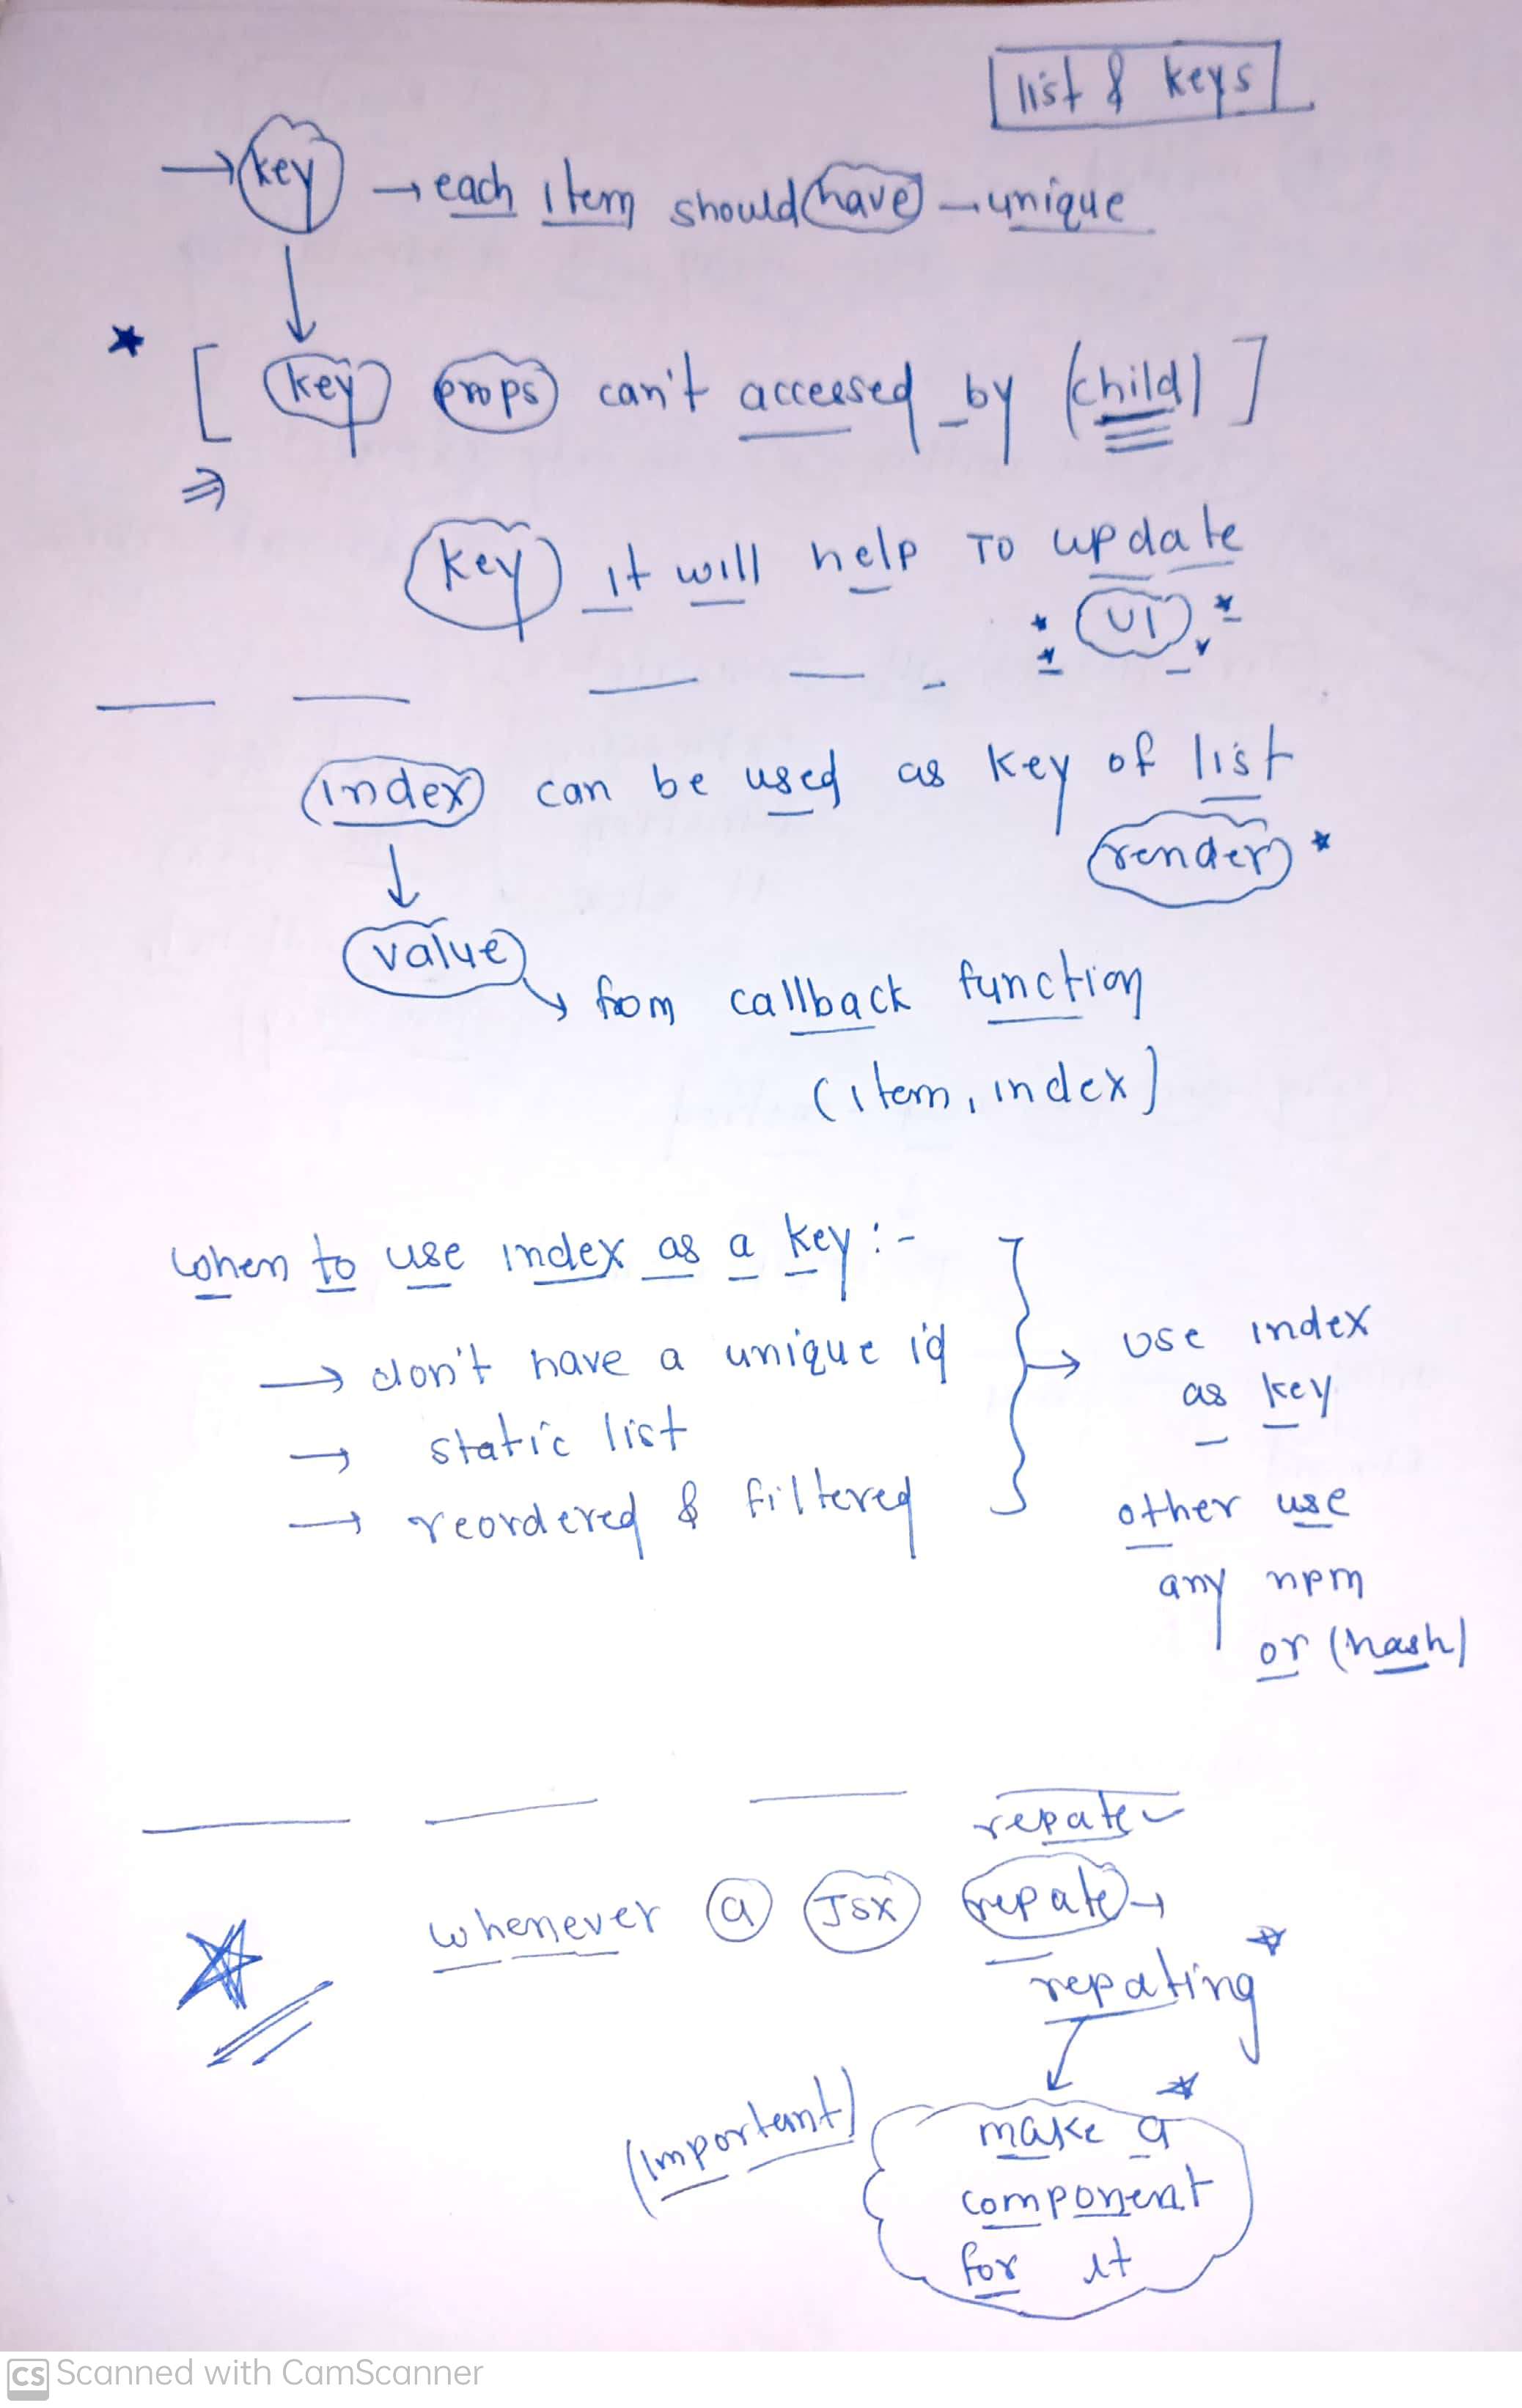 list & keys
→ key → each item should have → unique
[ key props can't accessed by (child) ]
⇒
key it will help TO update
UI
index can be used as key of list
render
value
from callback function
(item, index)
when to use index as a key :-
→ don't have a unique id
→ static list
→ reordered & filtered
use index
as key
other use
any npm
or (hash)
repate
whenever a JSX repate →
repating
(Important)
make a
component
for it
CS Scanned with CamScanner